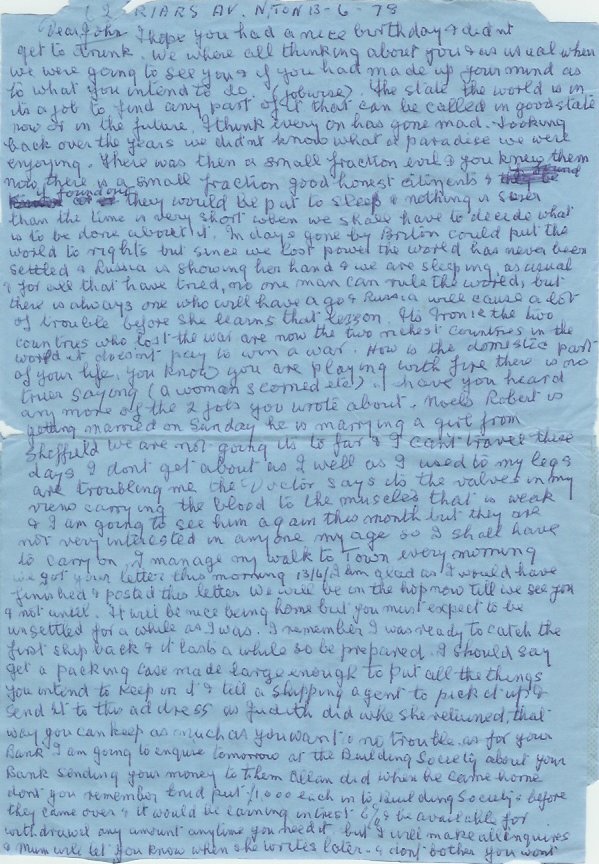 2 RIARS AV. N,TON 13-6-78
Dear John I hope you had a nice birthday & didnt
get to drunk. We where all thinking about you & as usual when
we were going to see you & if you had made up your mind as
to what you intend to do. (jobwise). The state the world is in
its a job to find any part of it that can be called in good state
now or in the future, I think every on has gone mad. Looking
back over the years we didnt know what a paradise we were
enjoying. There was then a small fraction evil & you knew them
now there is a small fraction good honest citiments &
found out they would be put to sleep & nothing is surer
than the time is very short when we shall have to decide what
is to be done about it. In days gone by Briton could put the
world to rights but since we lost power the world has never been
settled & Russia is showing her hand & we are sleeping, as usual
& for all that have tried, no one man can rule the world, but
there is always one who will have a go & Russia will cause a lot
of trouble before she learns that lesson. Its Ironic the two
countrus who lost the war are now the two richest countries in the
world it doesnt pay to win a war. How is the domestic part
of your life, you know you are playing with fire there is no
truer saying (a woman scorned etc). I have you heard
any more of the 2 jobs you wrote about. Noels Robert is
getting married on Sunday he is marrying a girl from
Sheffield we are not going its to far & I cant travel these
days I dont get about as I well as I used to my legs
are troubling me the Doctor says its the valves in my
view carrying the blood to the muscles that is weak
& I am going to see him again this month but they are
not very interested in anyone my age so I shall have
to carry on, I manage my walk to Town every morning
we got your letter this morning 13/6/ I am glad as I would have
finished & posted this letter We will be on the hop now till we see you
& not until. It will be nice being home but you must expect to be
unsettled for a while as I was. I remember I was ready to catch the
first ship back & it lasts a while so be prepared. I should say
get a packing case made large enough to put all the things
you intend to keep in it & tell a shipping agent to pick it up &
send it to this address as Judith did whe she returned, that
way you can keep as much as you want & no trouble. as for your
Bank I am going to enquire tomorrow at the Building Society about your
Bank sending your money to them Allan did when he came home
dont you remember Enid put £1,000 each in to Building Society before
they came over & it would be earning intrest 6% & be available for
withdrawl any amount anytime you need it but I will make all enquires
& Mum will let you know when she writes later. & dont bother you wont